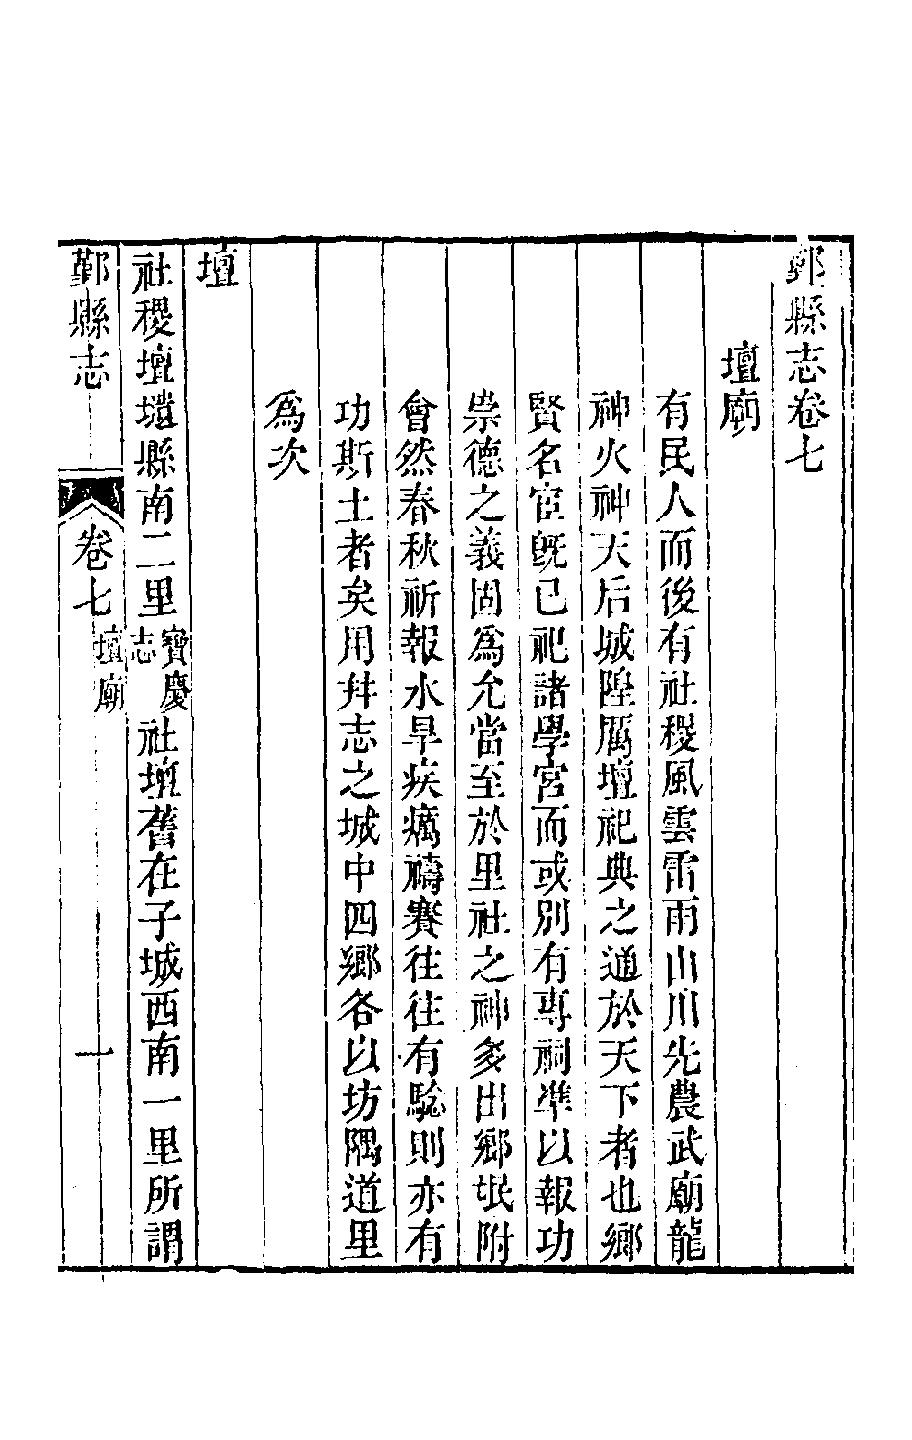 鄞縣志卷七
壇廟
有民人而後有社稷風雲雷雨山川先農武廟龍
神火神天后城隍厲壇祀典之通於天下者也鄉
賢名宦旣已祀諸學宮而或別有專祠準以報功
崇德之義固為允當至於里社之神多出鄉氓附
會然春秋祈報水旱疾癘禱賽往往有驗則亦有
功斯土者矣用幷志之城中四鄉各以坊隅道里
為次
壇
社稷壇壝縣南二里寶慶志社壇舊在子城西南一里所謂
鄞縣志 卷七 壇廟 一